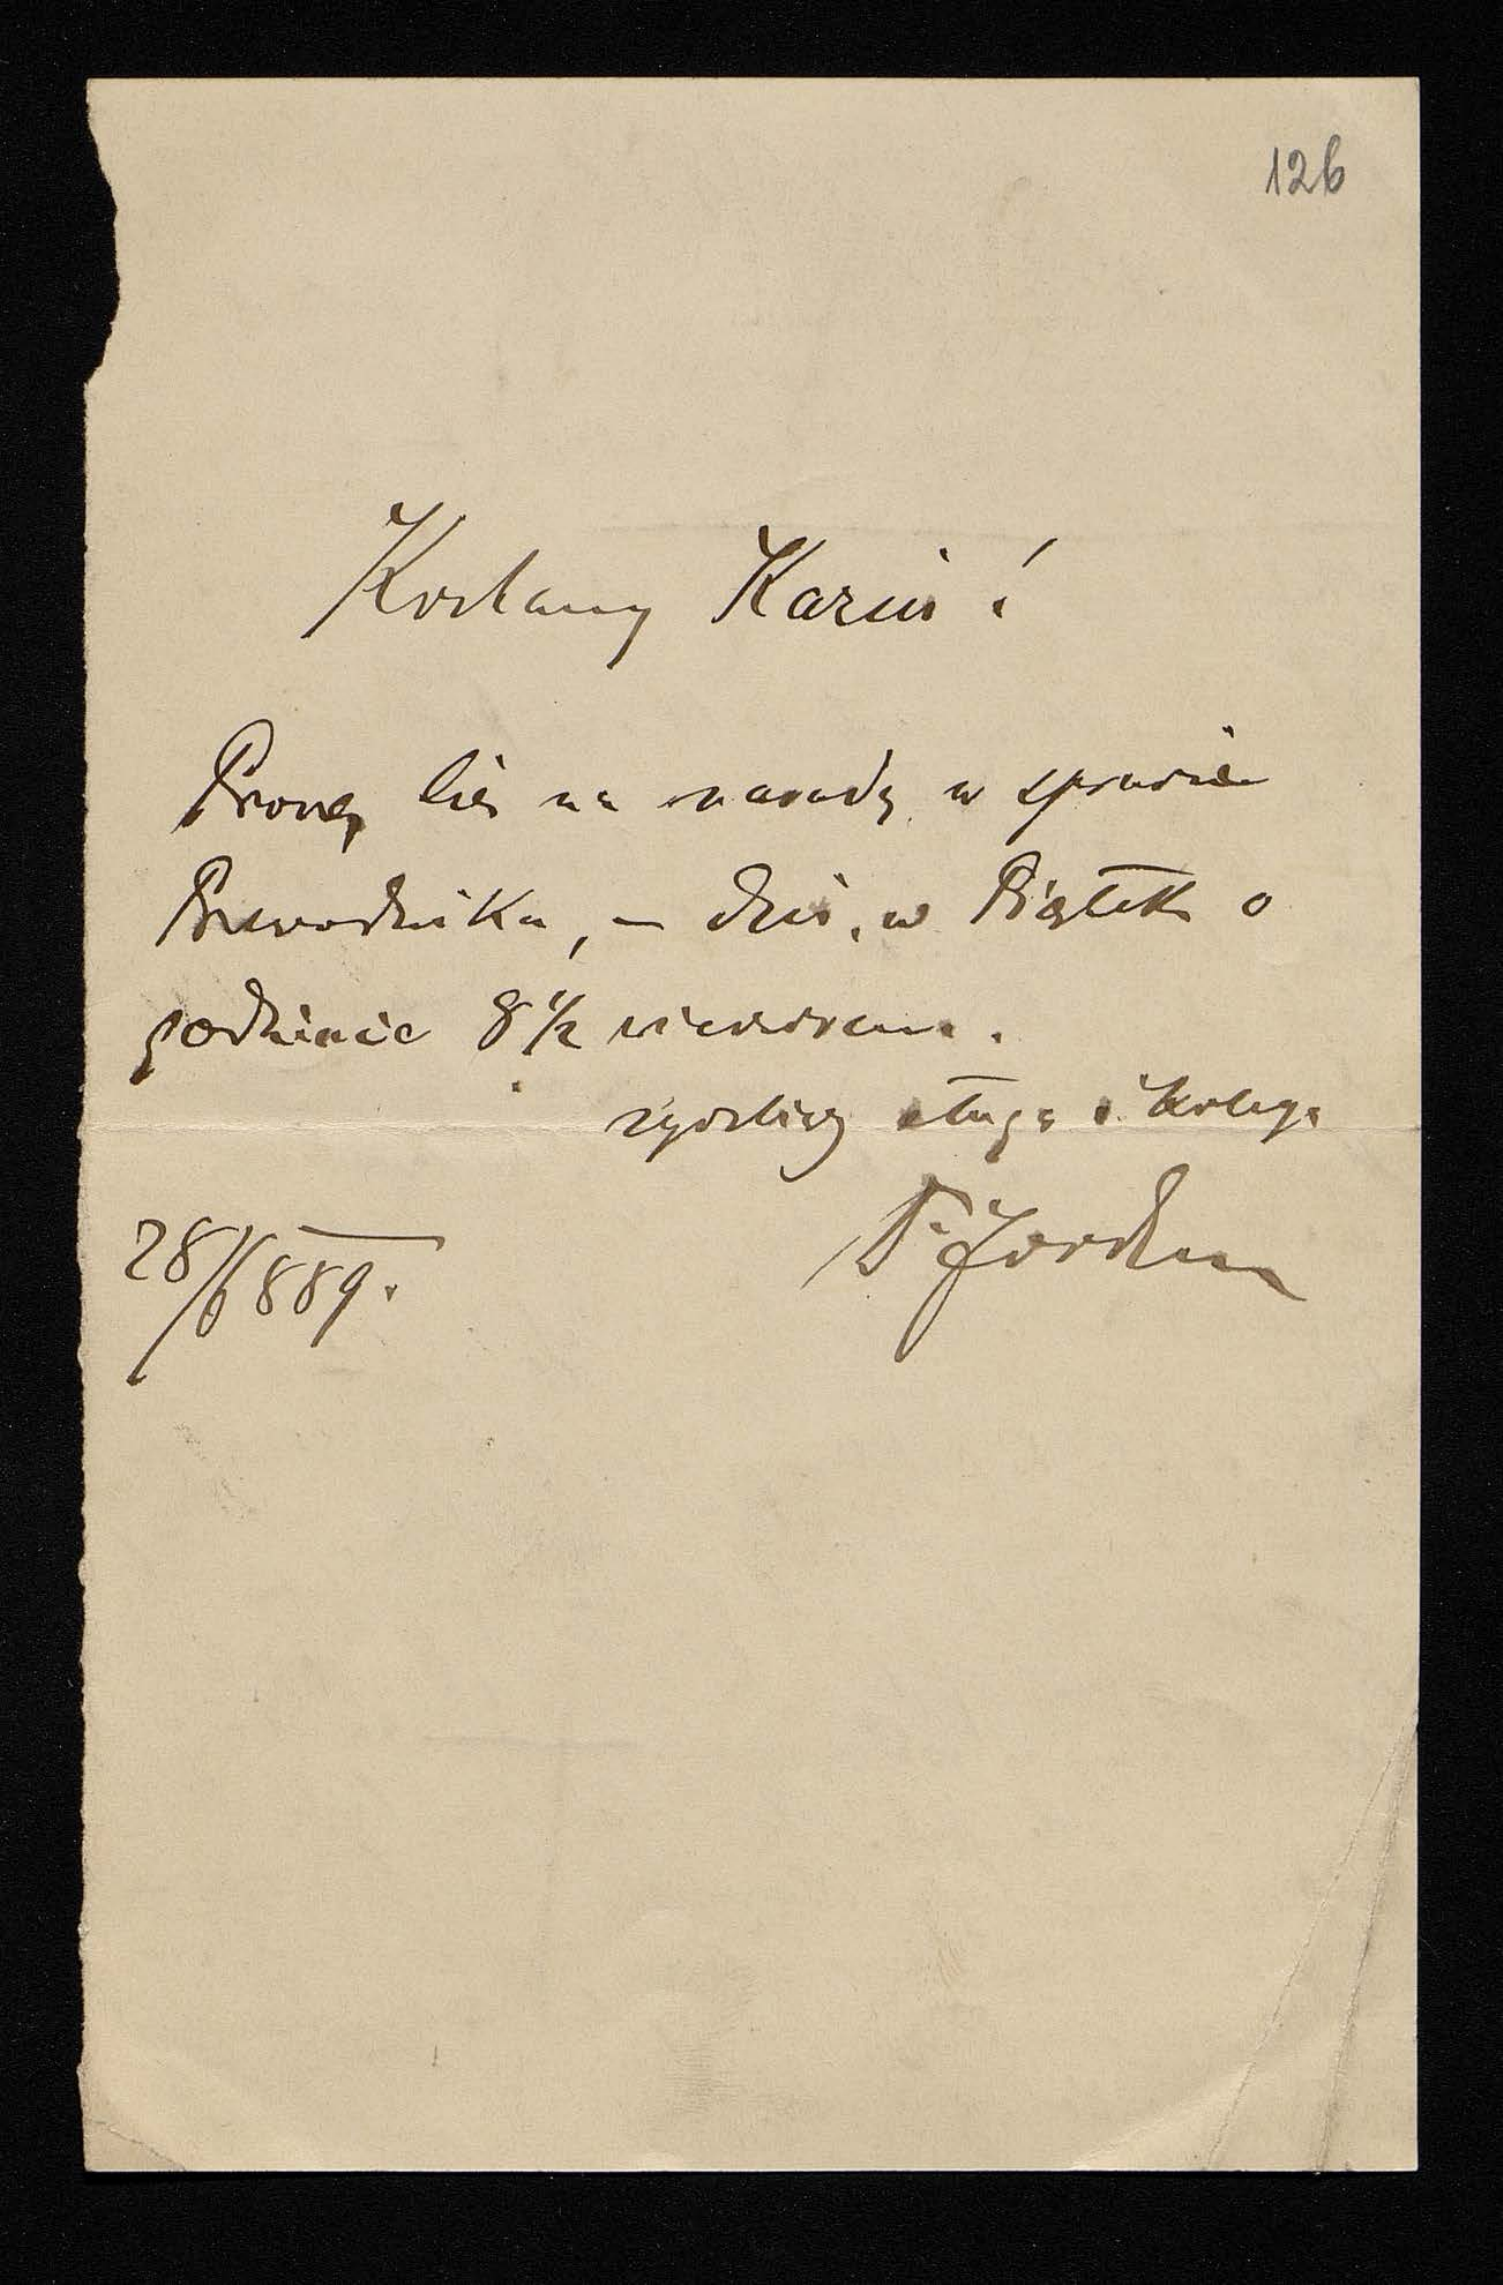 126
Kochany Kaziu!
Proszę Cię na naradę w sprawie
Przewodnika, – dziś, w Piątek o
godzinie 8 1/2 wieczorem.
życzliwy sługa i kolega
Jordan
28/6 889.